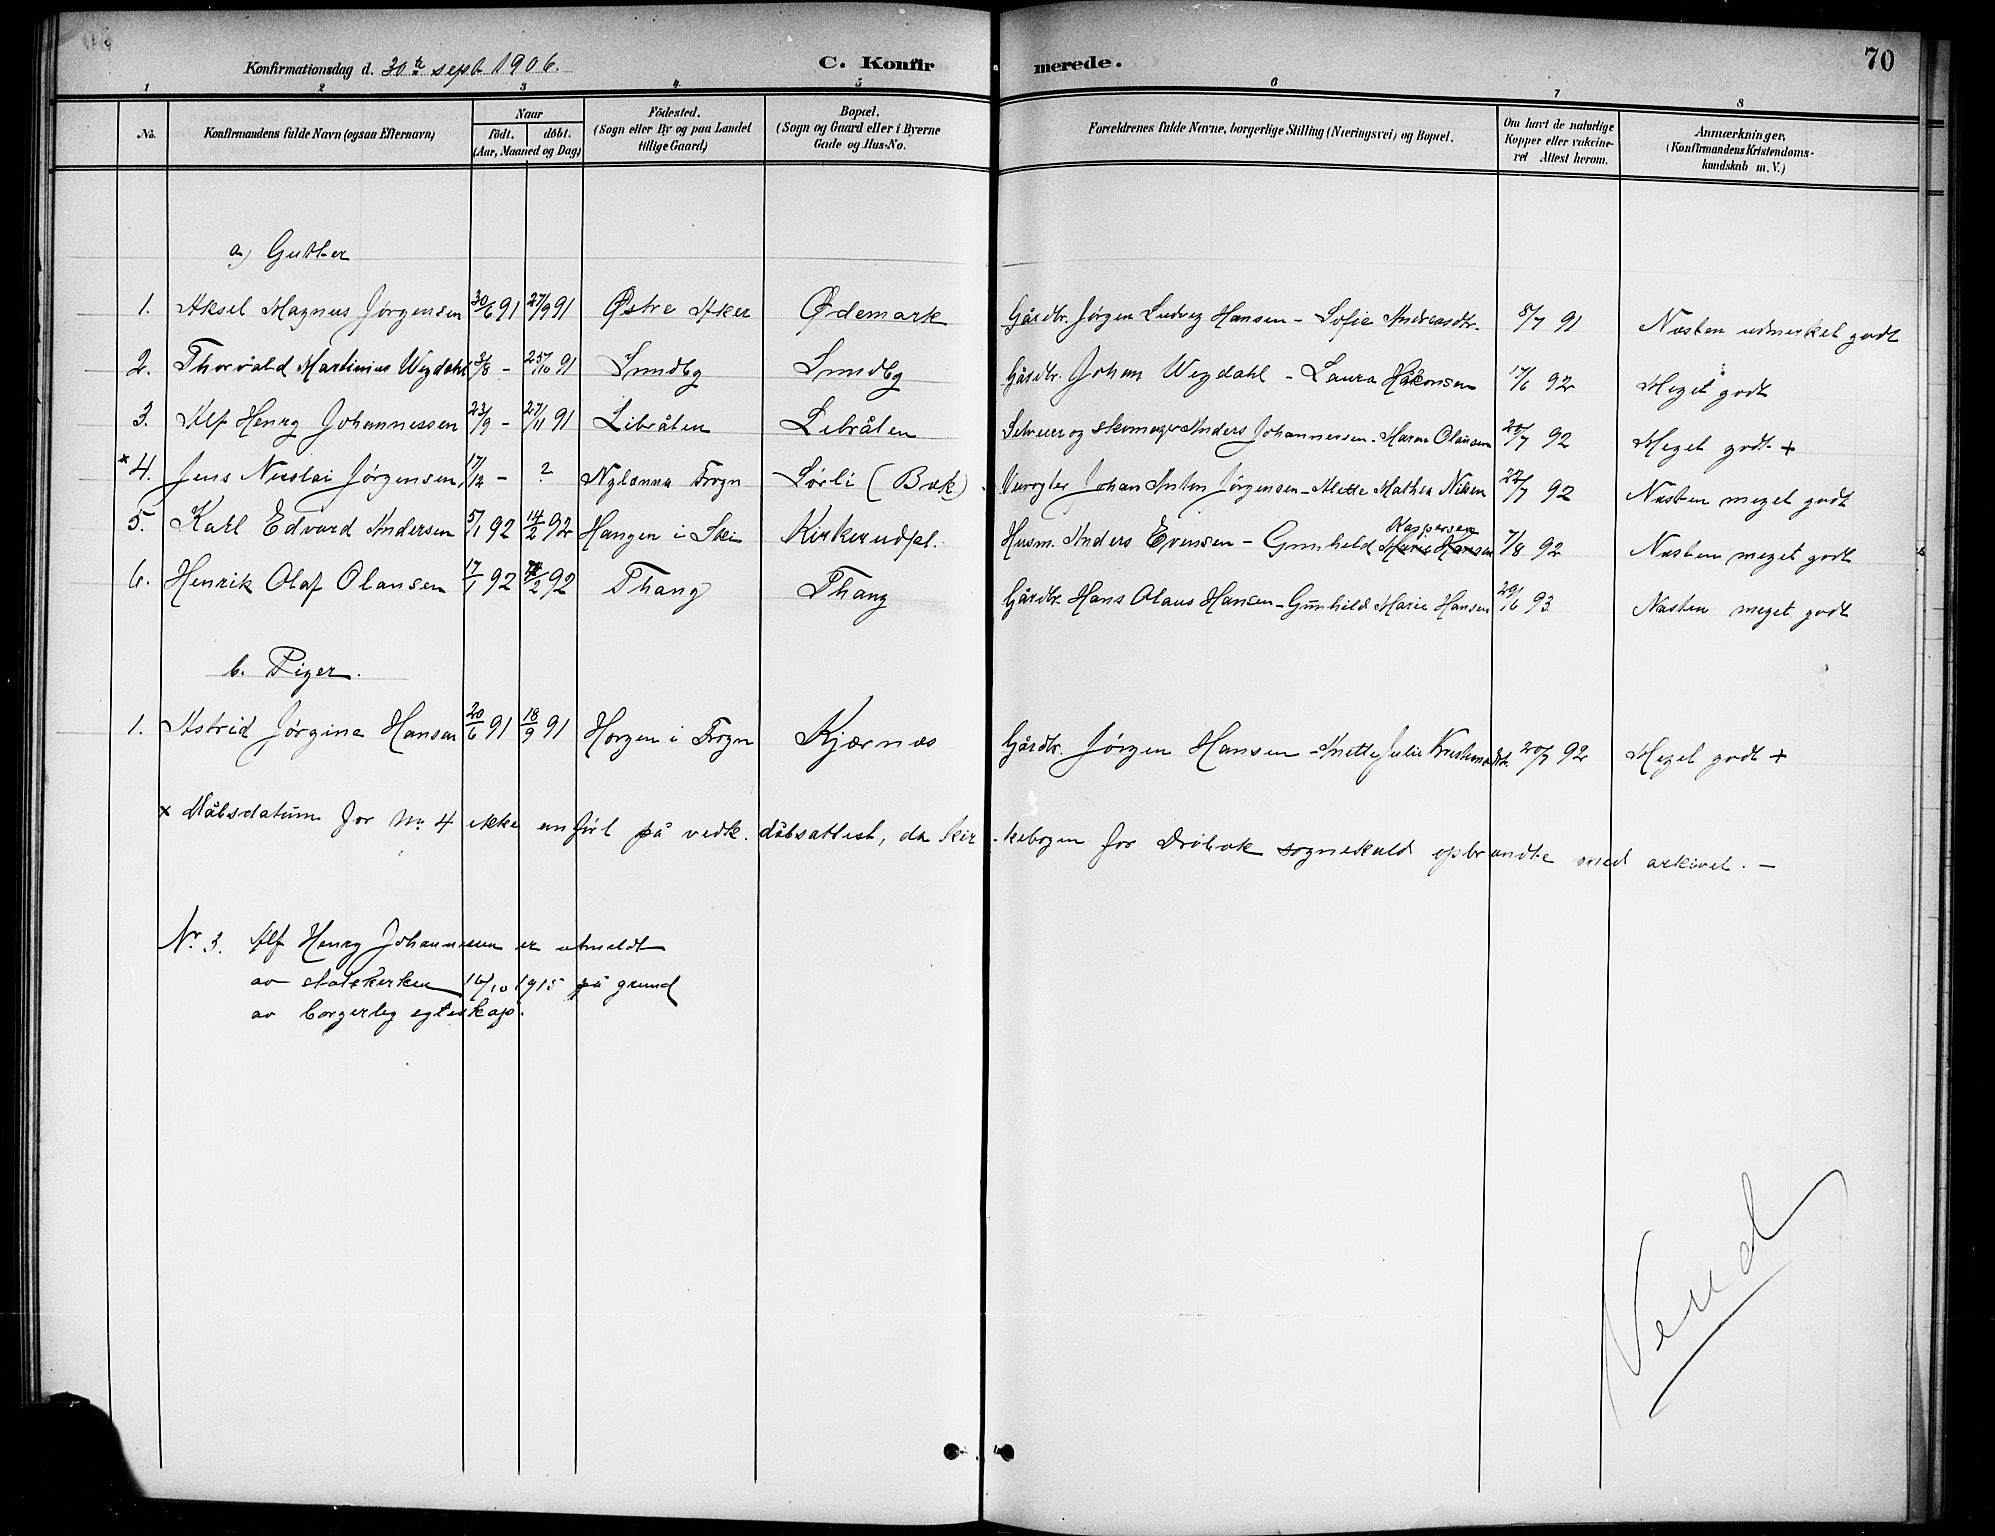 Konfirmationsdag d. 30te sept. 1906. C. Konfirmerede. 70
1 2 3 4 5 6 7 8
No. Konfirmandens fulde Navn (ogsaa Efternavn) Naar födt. döbt. (Aar, Maaned og Dag) Födested. (Sogn eller By og paa Landet tillige Gaard) Bopæl. (Sogn og Gaard eller i Byerne Gade og Hus-No. Forældrenes fulde Navne, borgerlige Stilling (Næringsvei) og Bopæl. Om havt de naturlige Kopper eller vakcineret Attest herom. Anmærkninger, (Konfirmandens Kristendomskundskab m. V.)
a) Gutter
1. Aksel Magnus Jørgensen 30/6 91 27/9 91 Østre Aker Ødemark Gårdbr. Jørgen Ludvig Hansen - Sofie Andreasdtr. 8/7 91 Næsten udmerket godt
2. Thorvald Martinius Wegdahl 3/8 - 25/10 91 Sundby Sundby Gårdbr. Johan Wegdahl - Laura Håkonsen 17/6 92 Meget godt
3. Alf Henry Johannessen 23/9 - 27/11 91 Libråten Libråten Selveier og skomager Anders Johannessen - Maren Olausen 20/7 92 Meget godt +
x 4. Jens Nicolai Jørgensen 17/12 - ? Nylanna Frogn Sørli (Bæk). Johan Anton Jørgensen - Alette Mathea Nilsen 22/7 92 Næsten meget godt
5. Karl Edvard Andersen 5/1 92 14/2 92 Haugen i Ski Kirkerudpl. Husm. Anders Evensen - Gunhild Kaspersen 7/8 92 Næsten meget godt
6. Henrik Olaf Olausen 17/1 92 /2 92 Thaug Thaug Gårdbr. Hans Olaus Hansen - Gunhild Marie Hansen 29/6 93 Næsten meget godt
b. Piger.
1. Astrid Jørgine Hansen 20/6 91 18/9 91 Horgen i Frogn Kjærnæs Gårdbr. Jørgen Hansen - Anette Julie 20/7 92 Meget godt +
x Dåbsdatum for No 4 ikke anført på vedk. dåbsattest, da kirkebogen for Drøbak sognekald opbrændte med arkivet. -
Nr. 3. Alf Henry Johannessen er utmeldt
av statskirken 16/10 1915 på grund
av borgerlig egteskap.
Vend